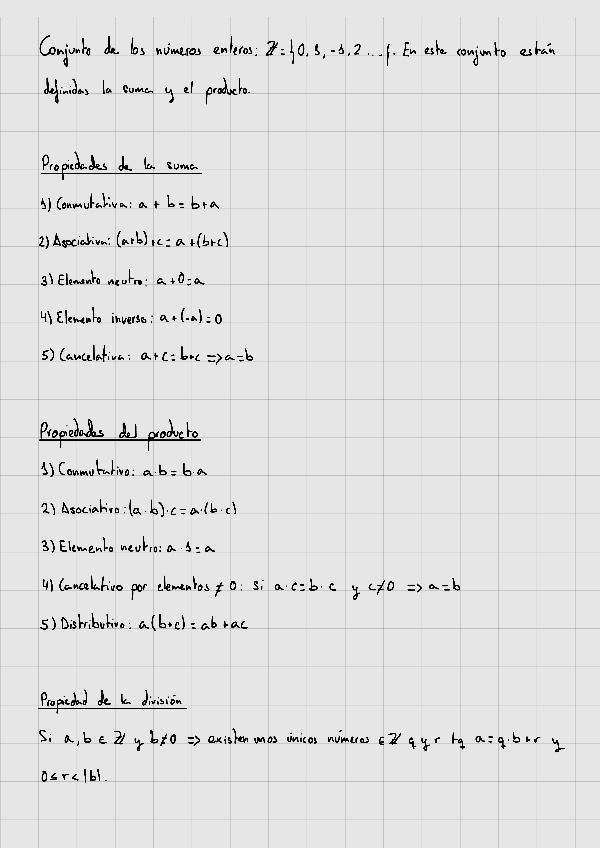 Conjunto de los números enteros: ℤ = {0, 1, -1, 2 ... }. En este conjunto están
definidas la suma y el producto.
Propiedades de la suma
1) Conmutativa: a + b = b + a
2) Asociativa: (a+b)+c = a+(b+c)
3) Elemento neutro: a + 0 = a
4) Elemento inverso: a + (-a) = 0
5) Cancelativa: a + c = b + c => a = b
Propiedades del producto
1) Conmutativo: a·b = b·a
2) Asociativo: (a·b)·c = a·(b·c)
3) Elemento neutro: a·1 = a
4) Cancelativo por elementos ≠ 0: Si a·c = b·c y c≠0 => a = b
5) Distributivo: a(b+c) = ab + ac
Propiedad de la división
Si a, b ∈ ℤ y b≠0 => existen unos únicos números ∈ ℤ q y r tq a = q·b + r y
0 ≤ r < |b|.